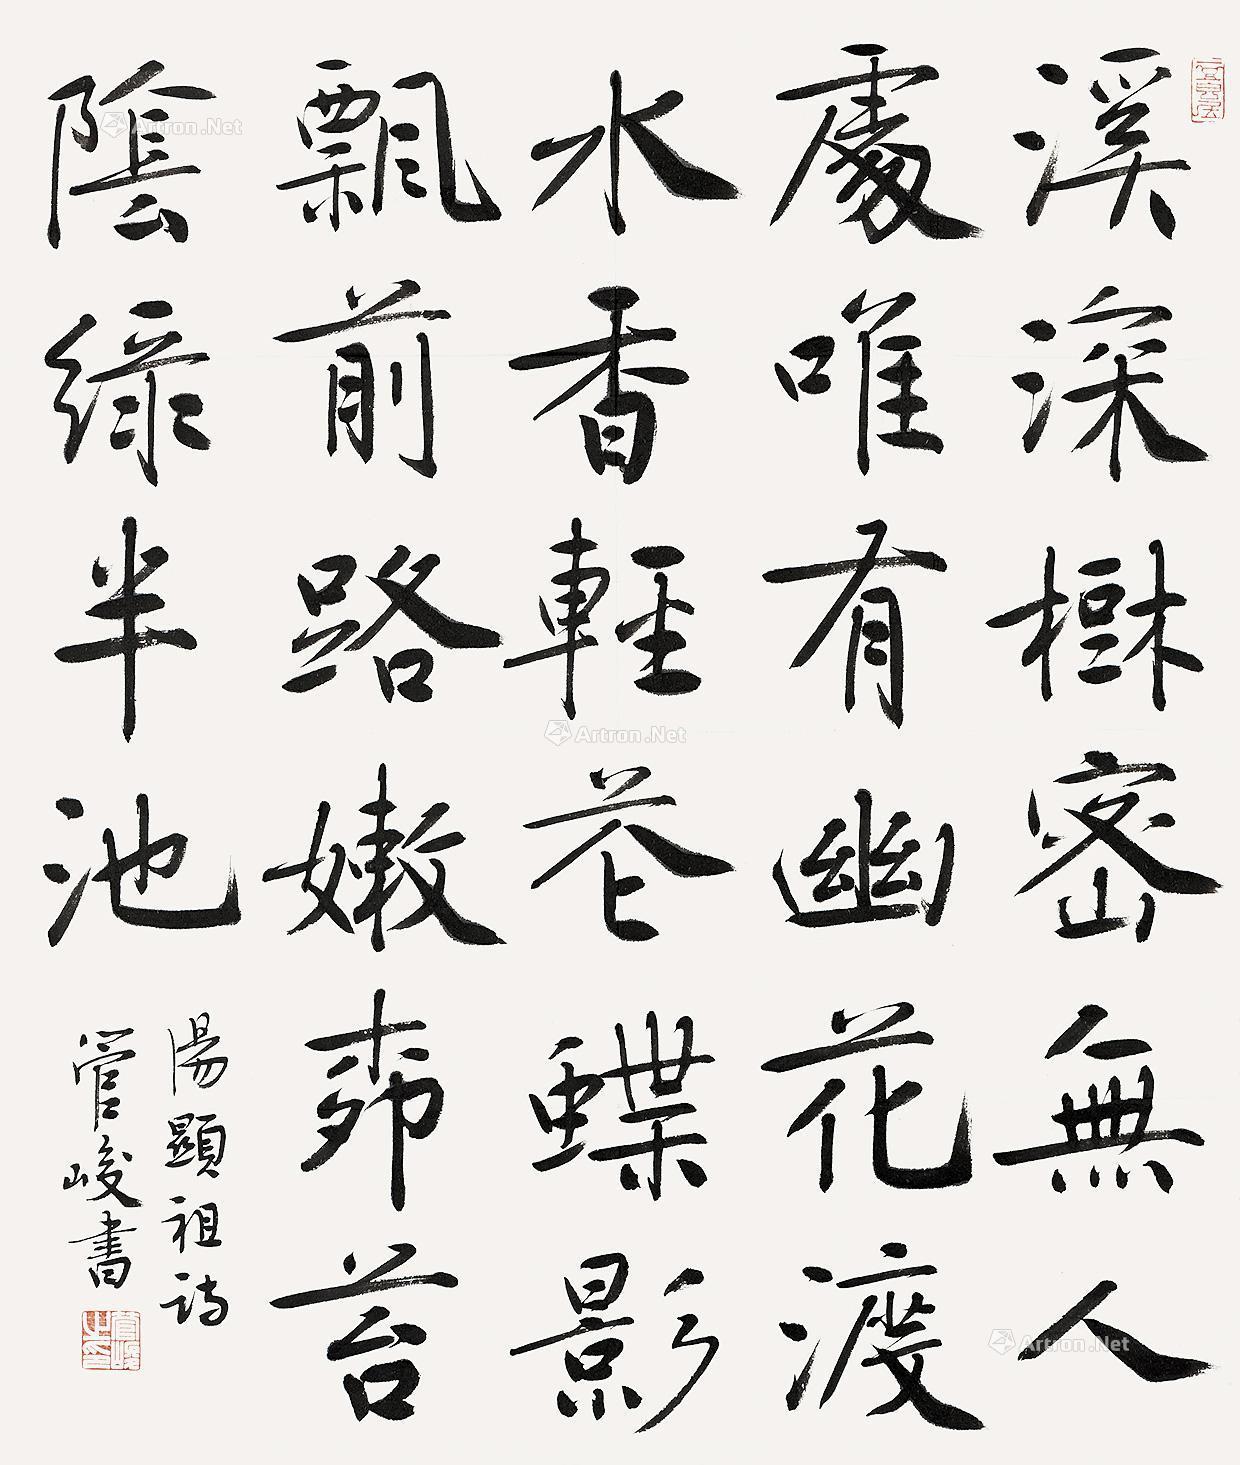 溪深樹密無人
處唯有幽花渡
水香輕花蝶影
飄前路嫩桺苔
陰綠半池
湯顯祖詩
管峻書
管峻之印
Artron.Net
Artron.Net
Artron.Net